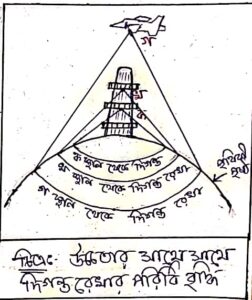 গ
খ
ক
ক স্থান থেকে দিগন্ত
খ স্থান থেকে দিগন্ত রেখা
গ স্থান থেকে দিগন্ত রেখা
পৃথিবী পৃষ্ঠ
চিত্র: উচ্চতার সাথে সাথে
দিগন্ত রেখার পরিধি বৃদ্ধি